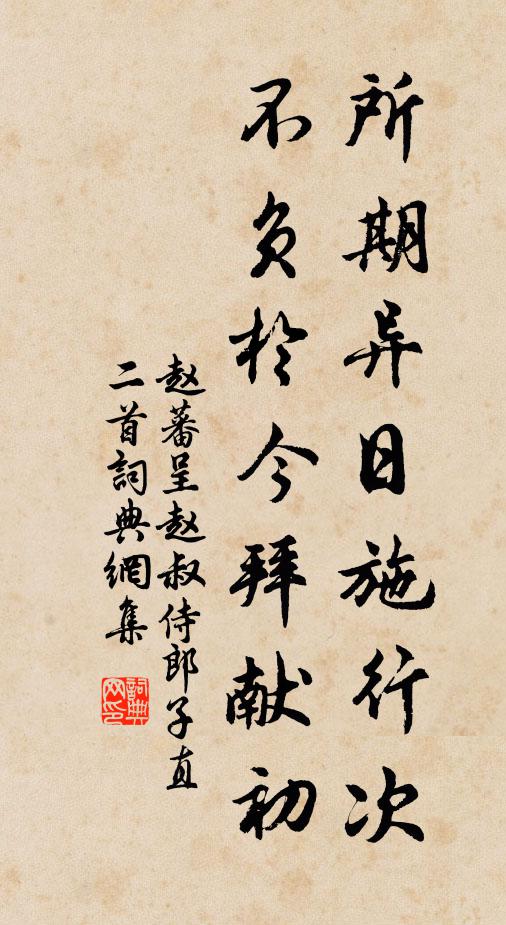 所期异日施行次
不负於今拜献初
赵蕃呈赵叔侍郎子直
二首詞典網集
詞典网印